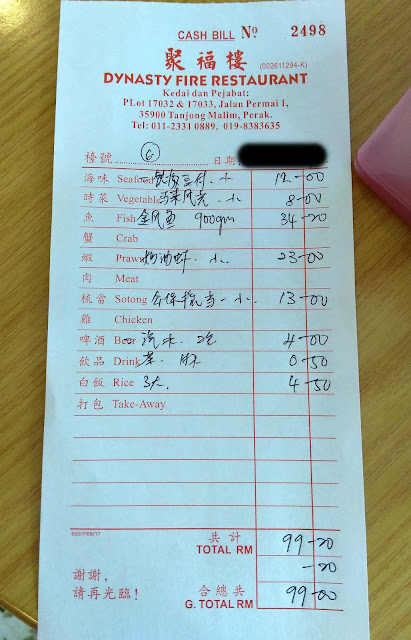 CASH BILL Nº 2498
聚福樓 (002611294-K)
DYNASTY FIRE RESTAURANT
Kedai dan Pejabat:
PLot 17032 & 17033, Jalan Permai 1,
35900 Tanjong Malim, Perak.
Tel: 011-2331 0889, 019-8383635
檯號 6 日期
海味 Seafood 小 12-00
時菜 Vegetable 小 8-00
魚 Fish 金凤鱼 900gm 34-20
蟹 Crab
蝦 Prawn 奶油虾.小 23-00
肉 Meat
梳當 Sotong 小 13-00
雞 Chicken
啤酒 Beer 汽水. 2 4-00
飲品 Drink 茶. 0-50
白飯 Rice 3大. 4-50
打包 Take-Away
共計
TOTAL RM 99-20
-20
謝謝,
請再光臨!
合總共
G. TOTAL RM 99-00